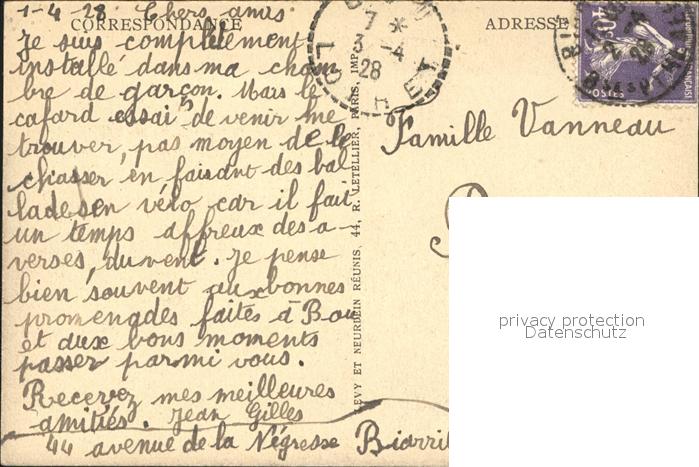 1-4 28 Chers amis
CORRESPONDANCE
Je suis complètement
installé dans ma cham
bre de garçon. Mais le
cafard essai de venir me
trouver, pas moyen de le
chasser en faisant des bal
lades en vélo car il fait
un temps affreux des a-
verses, du vent. Je pense
bien souvent aux bonnes
promenades faites à Bou
et aux bons moments
passer parmi vous.
Recevez mes meilleures
amitiés. Jean Gilles
44 avenue de la Négresse Biarri
LEVY ET NEURDEIN RÉUNIS, 44, R. LETELLIER, PARIS, IMP.
7 *
3 -4
28
ADRESSE
40
POSTES
Famille Vanneau
privacy protection
Datenschutz